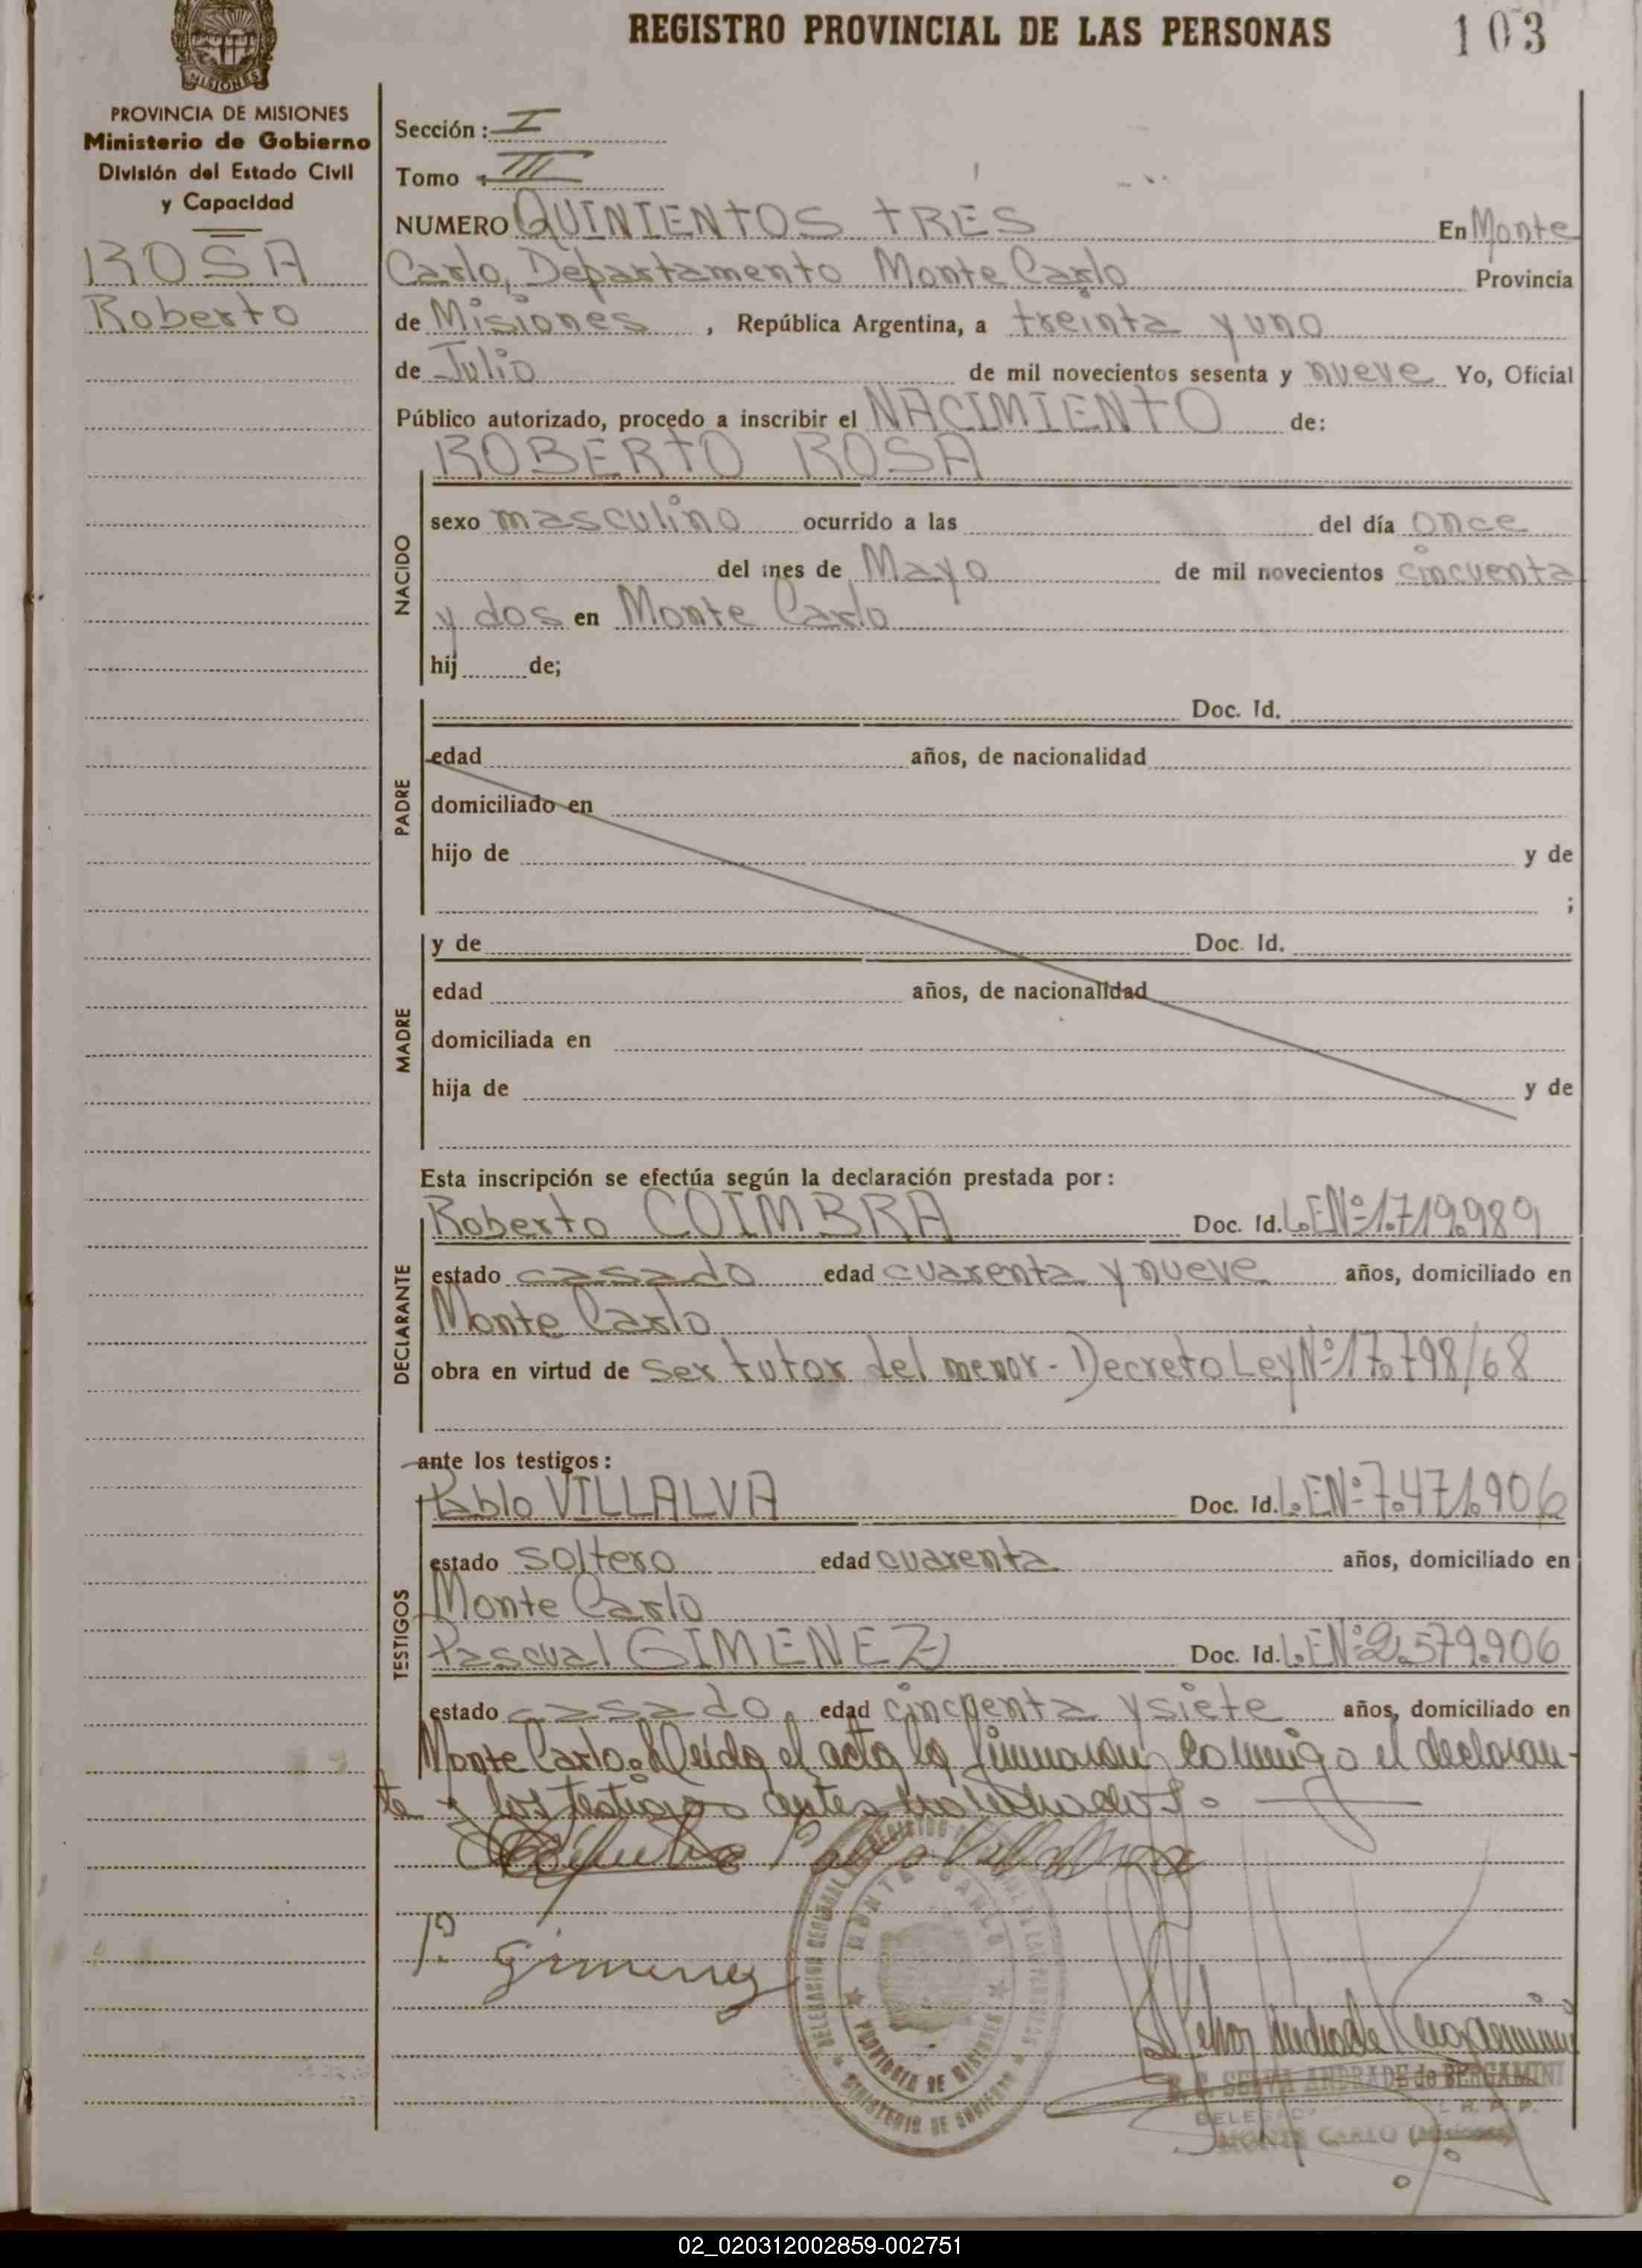 REGISTRO PROVINCIAL DE LAS PERSONAS 103
MISIONES
PROVINCIA DE MISIONES
Ministerio de Gobierno
División del Estado Civil
y Capacidad
ROSA
Roberto
Sección: I
Tomo III
NUMERO QUINIENTOS TRES En Monte
Carlo, Departamento Monte Carlo Provincia
de Misiones, República Argentina, a treinta y uno
de Julio de mil novecientos sesenta y nueve Yo, Oficial
Público autorizado, procedo a inscribir el NACIMIENTO de:
ROBERTO ROSA
NACIDO
sexo masculino ocurrido a las del día once
del mes de Mayo de mil novecientos cincuenta
y dos en Monte Carlo
hij de;
PADRE
Doc. Id.
edad años, de nacionalidad
domiciliado en
hijo de y de
;
MADRE
y de Doc. Id.
edad años, de nacionalidad
domiciliada en
hija de y de
Esta inscripción se efectúa según la declaración prestada por:
DECLARANTE
Roberto COIMBRA Doc. Id. L.E.Nº1.719.989
estado casado edad cuarenta y nueve años, domiciliado en
Monte Carlo
obra en virtud de ser tutor del menor - Decreto Ley Nº17.798/68
ante los testigos:
TESTIGOS
Pablo VILLALVA Doc. Id. L.E.Nº7.471.906
estado soltero edad cuarenta años, domiciliado en
Monte Carlo
Pascual GIMENEZ Doc. Id. L.E.Nº2.579.906
estado casado edad cincuenta y siete años, domiciliado en
Monte Carlo. Leida el acta la firmaron conmigo el declaran-
te y los testigos antes mencionados.
Pablo Villalva
P. Gimenez
DELEGACION REGIONAL REGISTRO PROVINCIAL DE LAS PERSONAS
MONTE CARLO
PROVINCIA DE MISIONES
MINISTERIO DE GOBIERNO
SELVA ANDRADE de BERGAMINI
MONTE CARLO (Misiones)
02_020312002859-002751